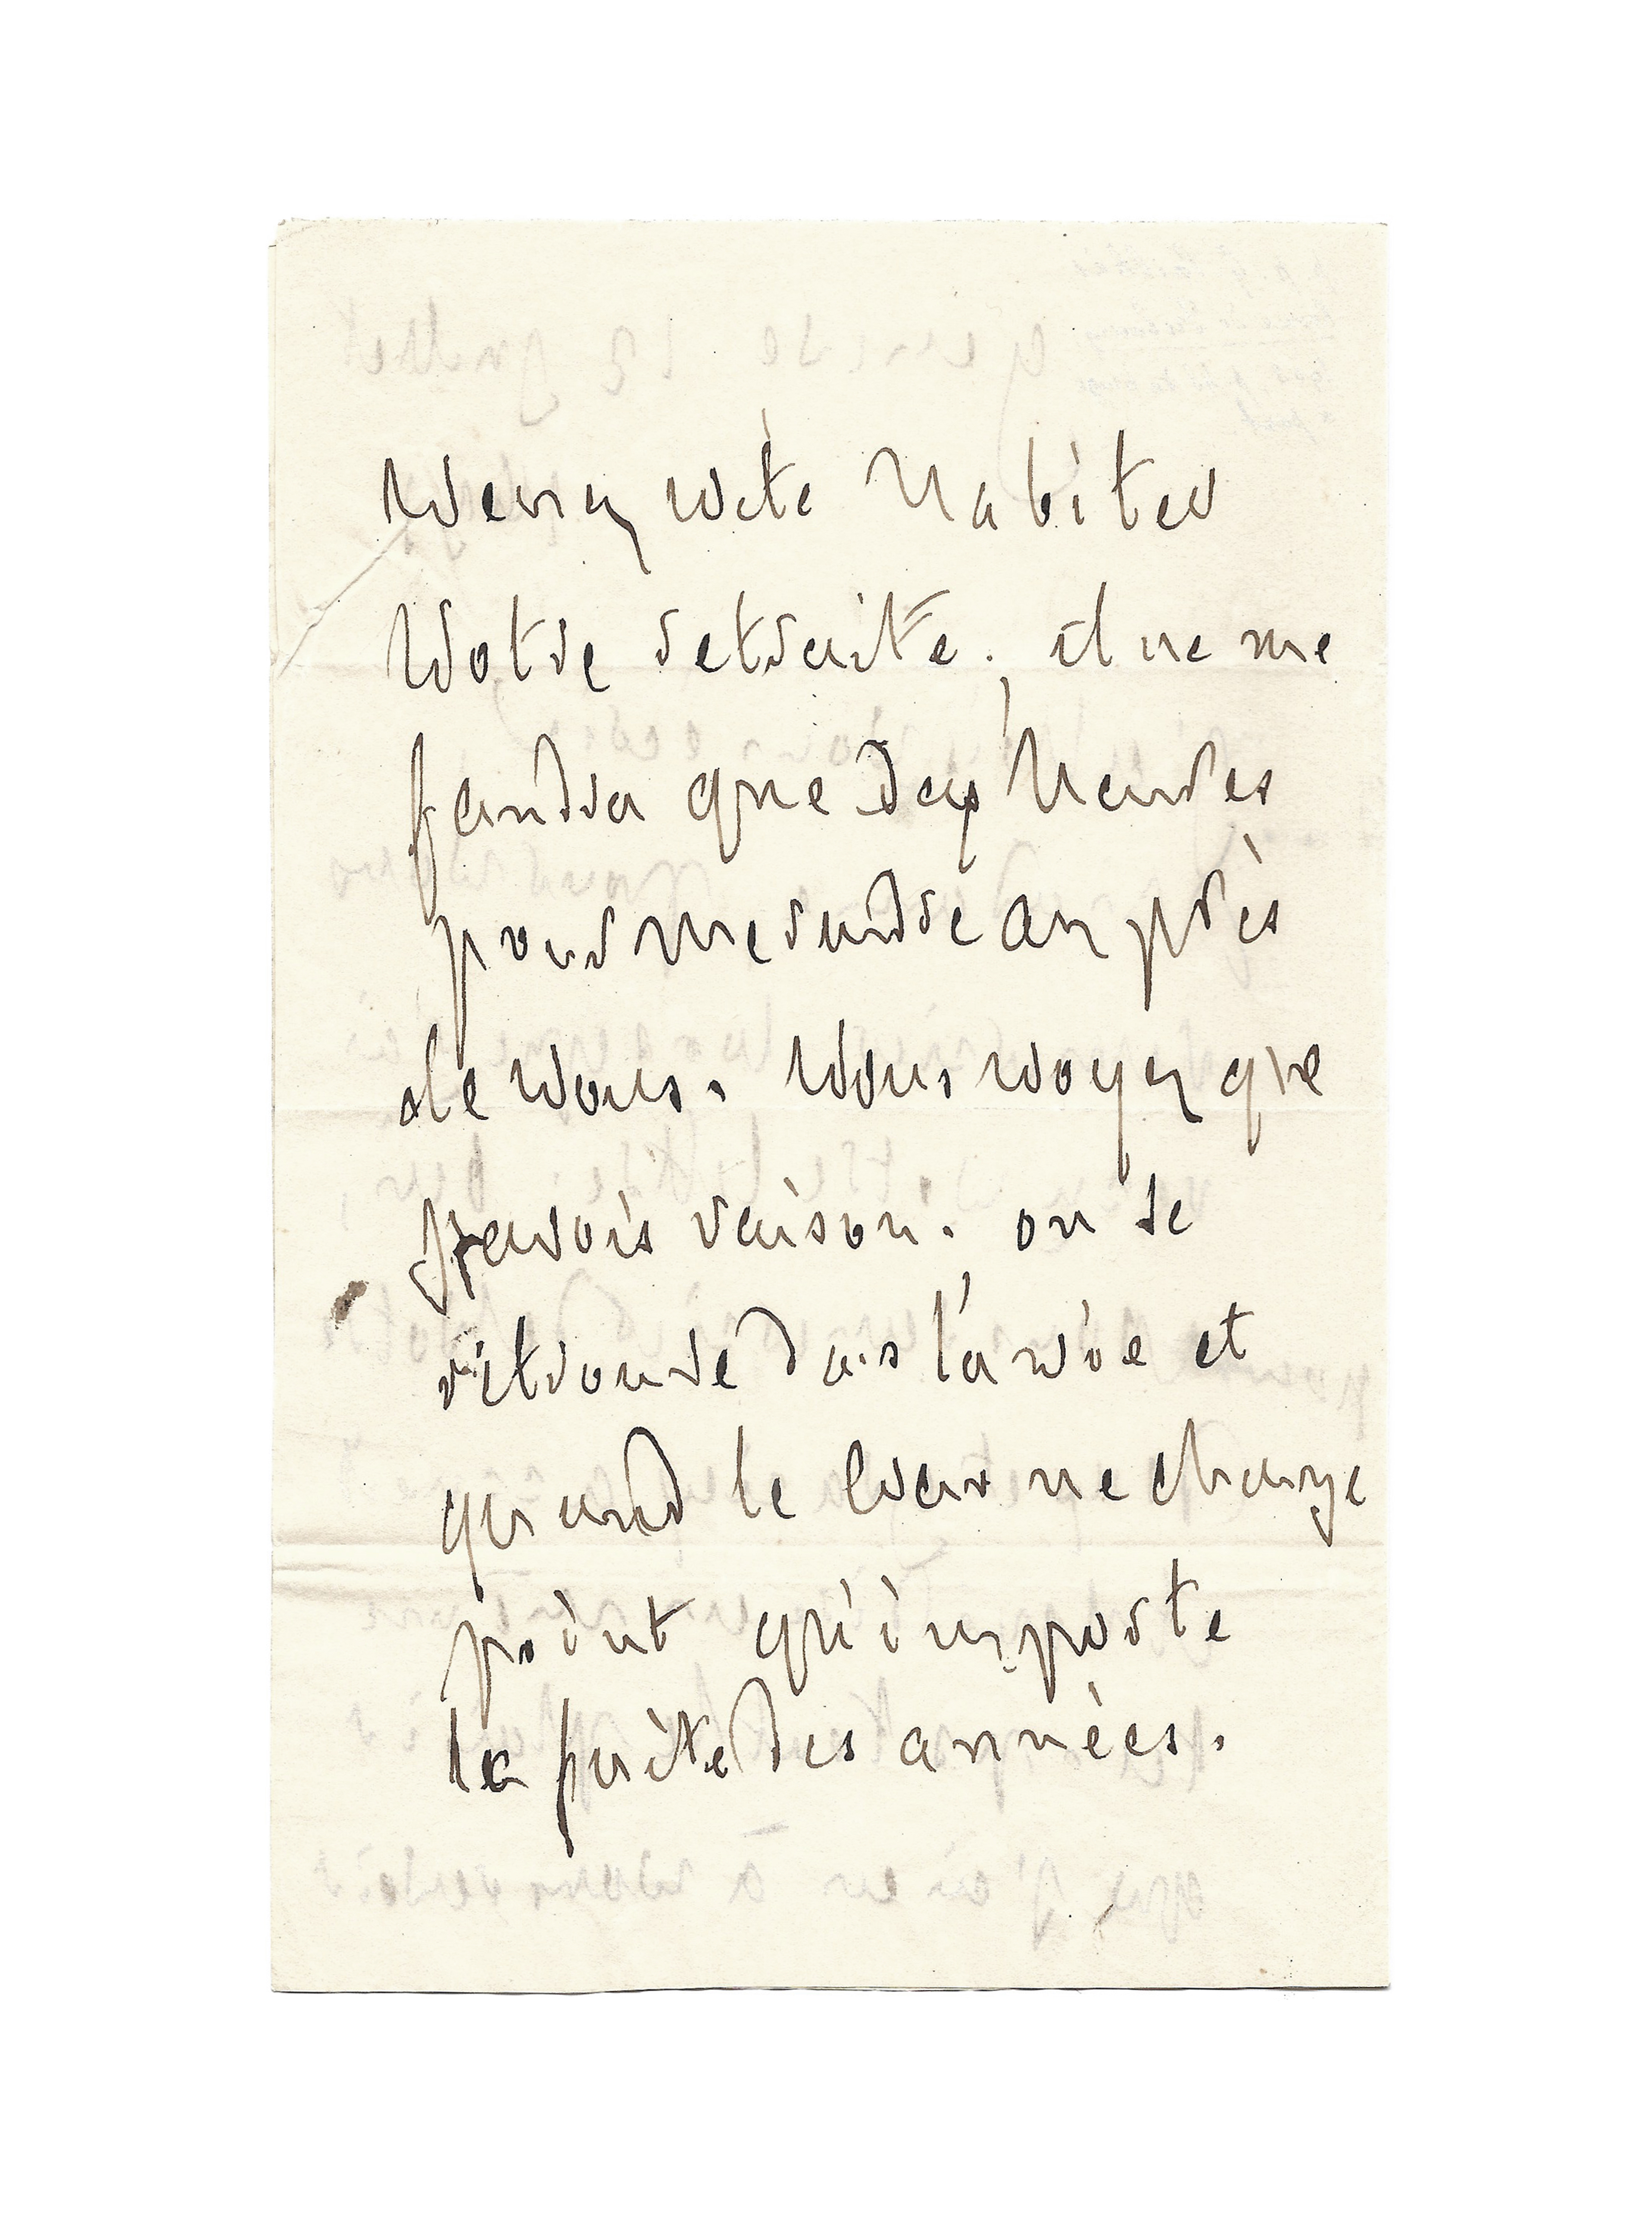 Venez vite habiter
votre retraite. il ne me
faudra que dix heures
pour me rendre auprès
de vous. Vous voyez que
j'avois raison. on se
retrouve dans la vie et
quand le cœur ne change
point qu'importe
la fuite des années.